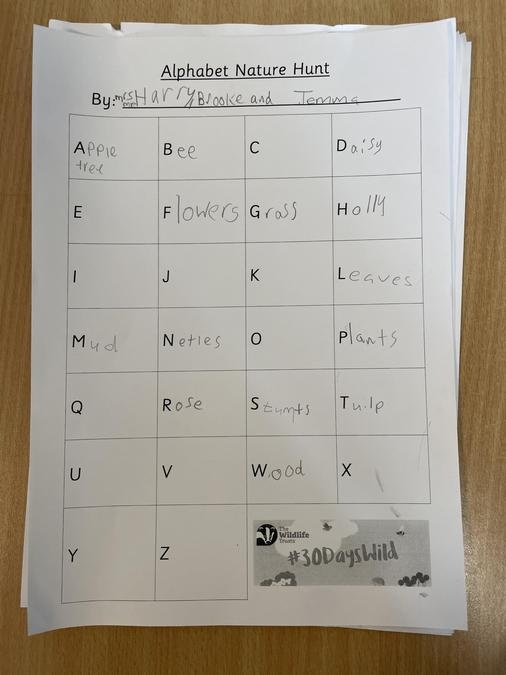 Alphabet Nature Hunt
By: mrs Harry Brooke and Jemma
Apple tree
Bee
C
Daisy
E
Flowers
Grass
Holly
I
J
K
Leaves
Mud
Netles
O
Plants
Q
Rose
Stumps
Tulip
U
V
Wood
X
Y
Z
The Wildlife Trusts
#30DaysWild